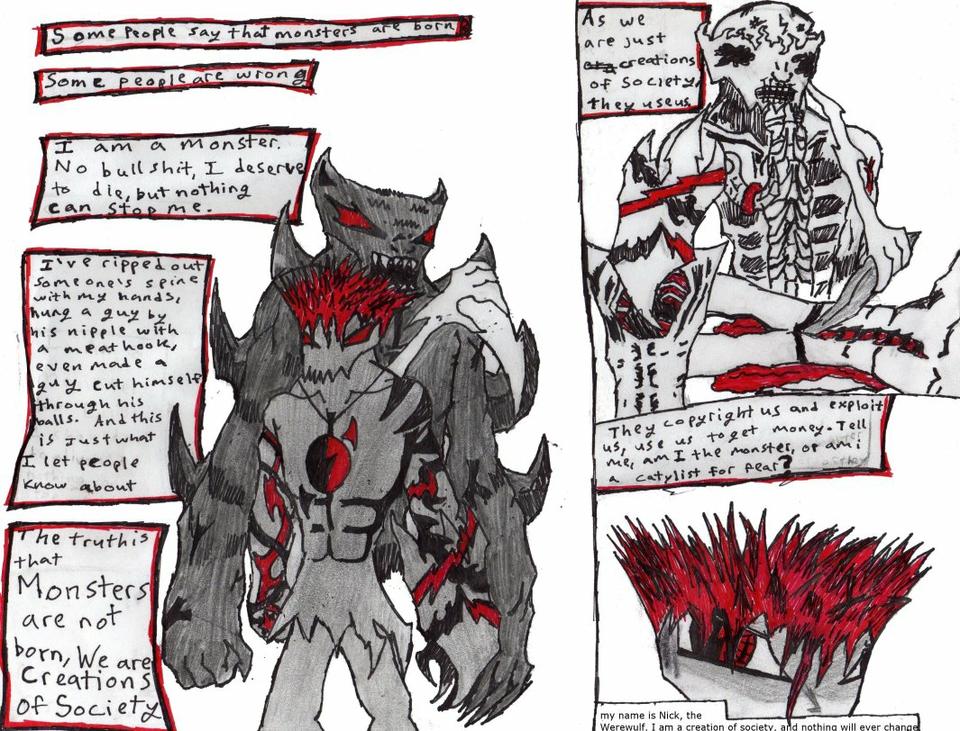 Some people say that monsters are born
Some people are wrong
I am a monster.
No bullshit, I deserve
to die, but nothing
can stop me.
I've ripped out
someone's spine
with my hands,
hung a guy by
his nipple with
a meathook,
even made a
guy cut himself
through his
balls. And this
is just what
I let people
know about
The truth is
that
Monsters
are not
born, We are
Creations
of Society
As we
are just
creations
of society,
they use us,
They copyright us and exploit
us, use us to get money. Tell
me, am I the monster, or am i
a catylist for fear?
my name is Nick, the
Werewulf. I am a creation of society, and nothing will ever change